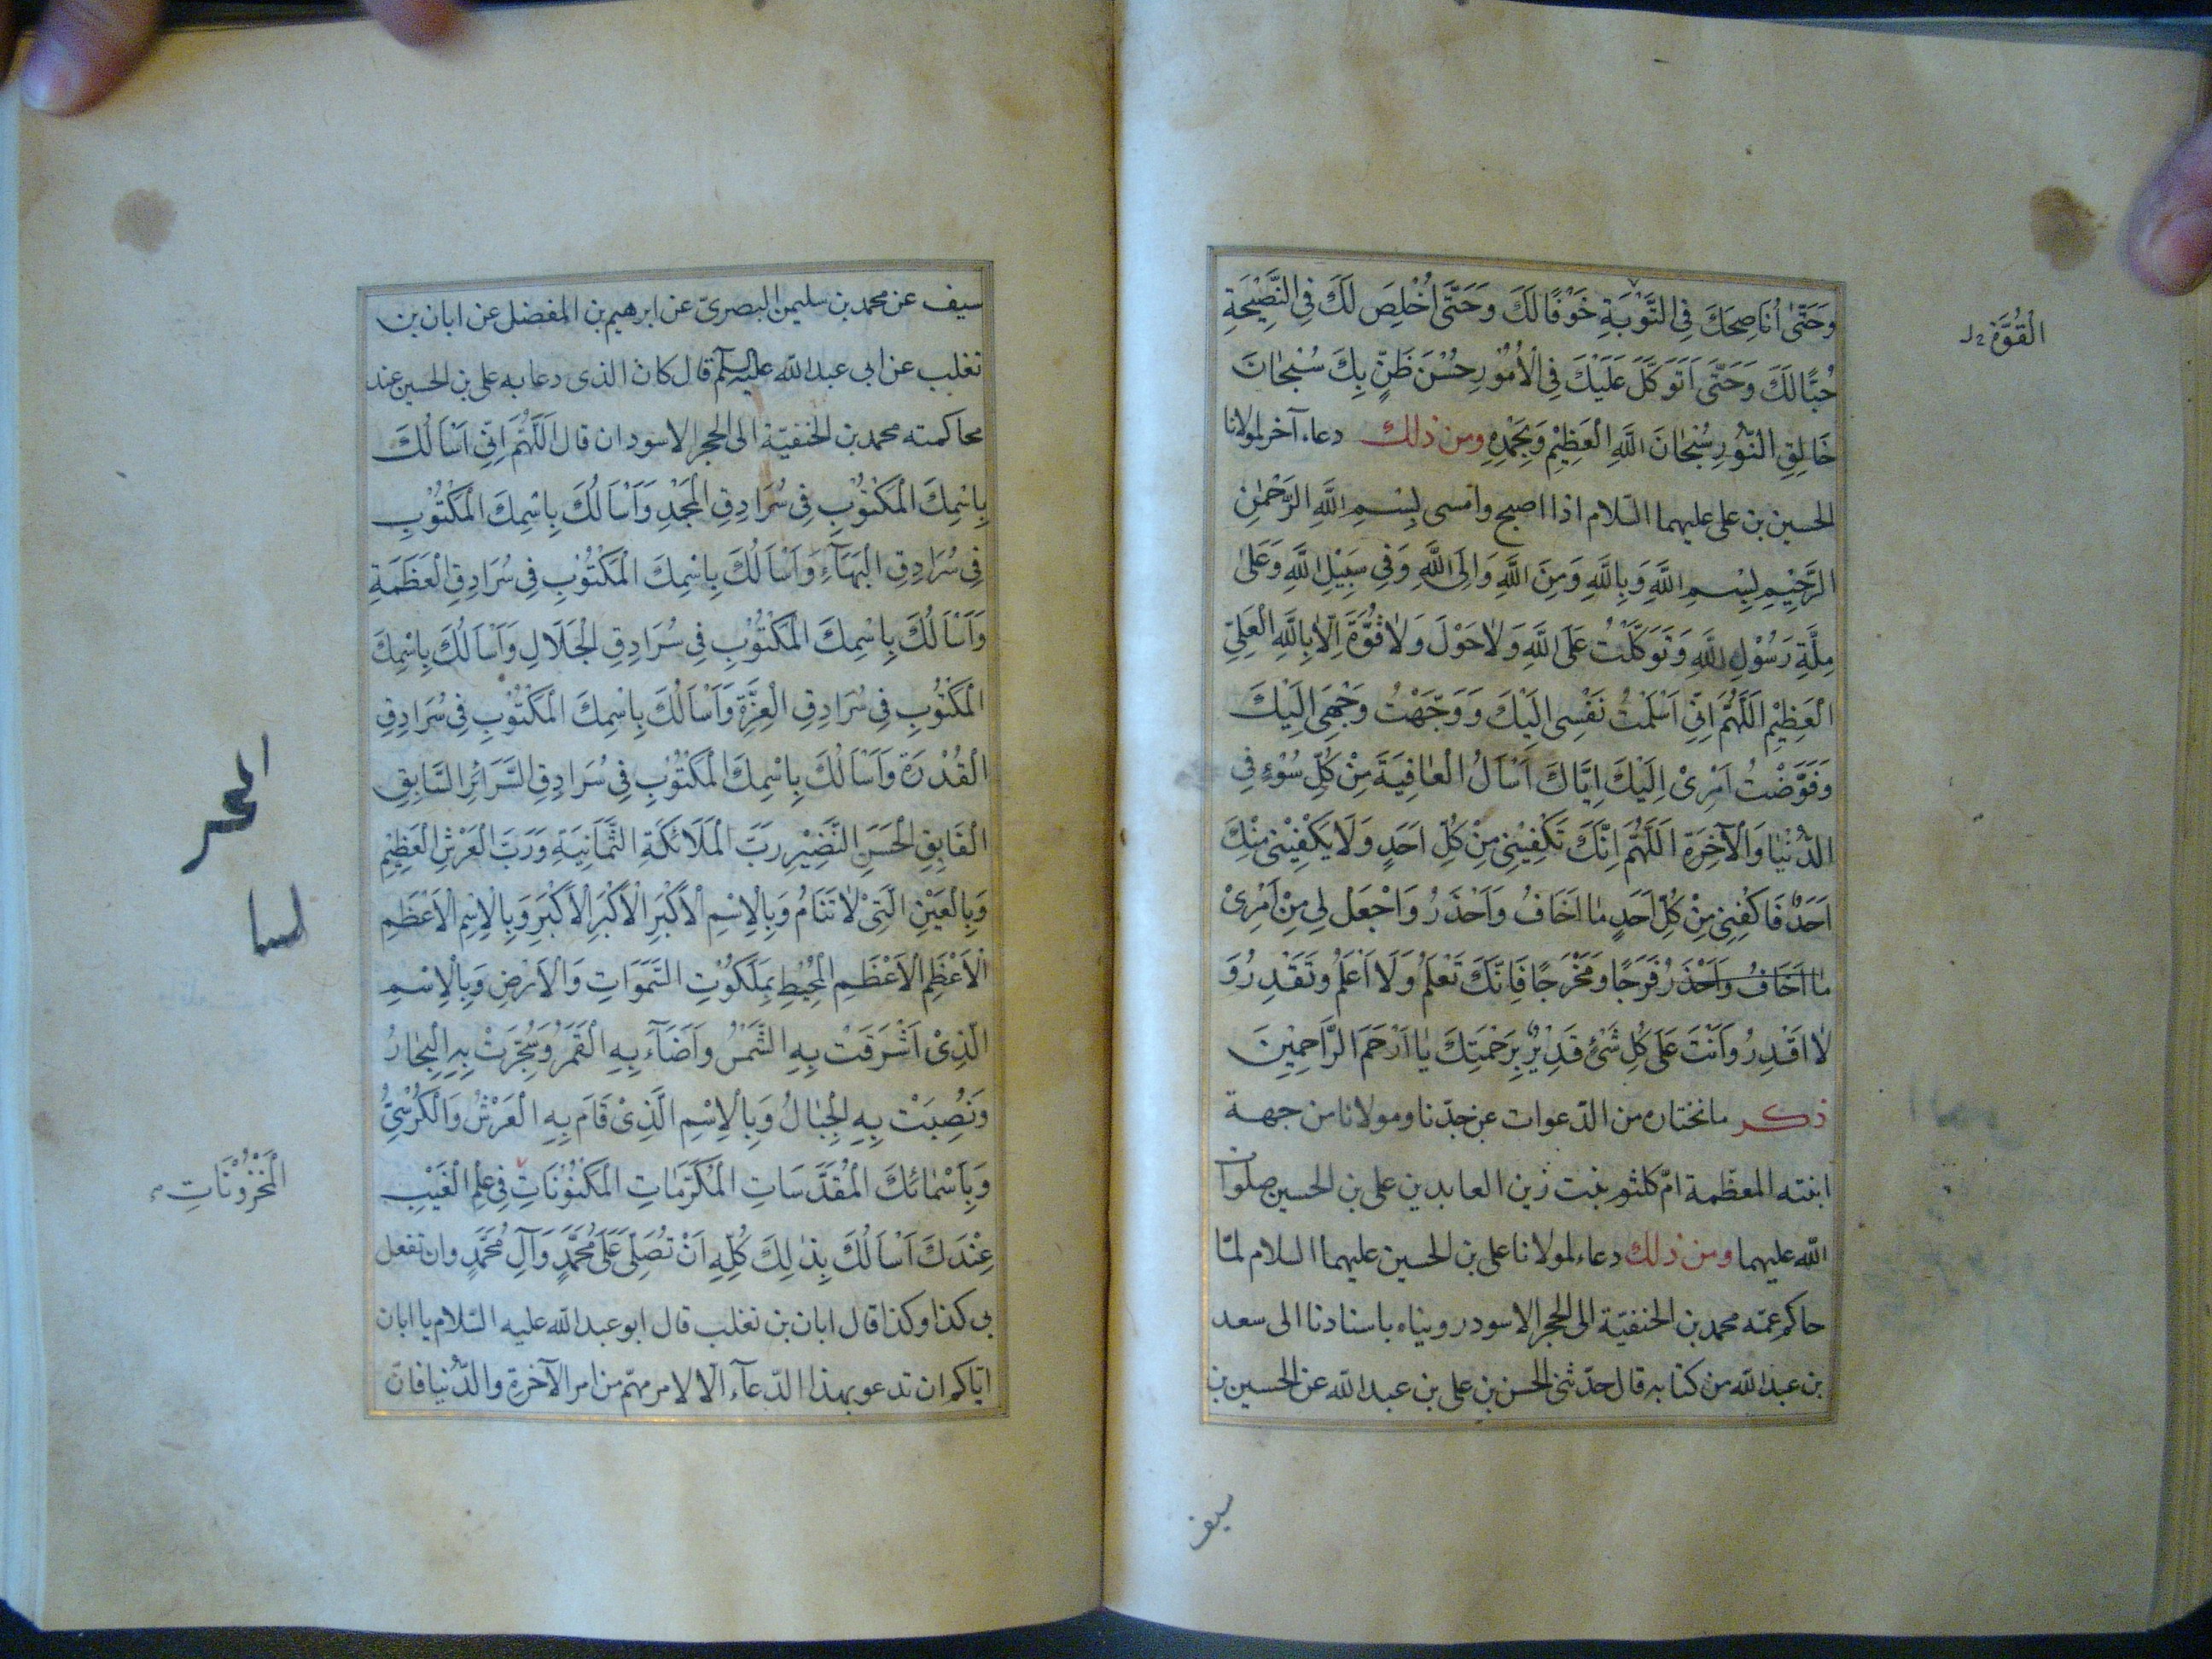 وَحَتّىٰ اُنَاصِحَكَ فِى التَّوْبَةِ خَوْفًا لَكَ وَحَتَّى اُخْلِصَ لَكَ فِى النَّصِيْحَةِ
حُبًّا لَكَ وَحَتّىٰ اَتَوَكَّلَ عَلَيْكَ فِى الْاُمُوْرِ حُسْنَ ظَنٍّ بِكَ سُبْحَانَ
خَالِقِ النُّوْرِ سُبْحَانَ اللَّهِ الْعَظِيْمِ وَبِحَمْدِهِ ومن ذلك دعاء آخر لمولانا
الحسين بن على عليهما السّلام اذا اصبح وامسى بِسْمِ اللَّهِ الرَّحْمٰنِ
الرَّحِيْمِ بِسْمِ اللَّهِ وَبِاللَّهِ وَمِنَ اللَّهِ وَاِلَى اللَّهِ وَفِى سَبِيْلِ اللَّهِ وَعَلىٰ
مِلَّةِ رَسُوْلِ اللَّهِ وَتَوَكَّلْتُ عَلَى اللَّهِ وَلاٰ حَوْلَ وَلاٰ قُوَّةَ اِلّاٰ بِاللَّهِ الْعَلِىِّ
الْعَظِيْمِ اَللَّهُمَّ اِنِّى اَسْلَمْتُ نَفْسِى اِلَيْكَ وَوَجَّهْتُ وَجْهِى اِلَيْكَ
وَفَوَّضْتُ اَمْرِىْ اِلَيْكَ اِيَّاكَ اَسْاَلُ الْعٰافِيَةَ مِنْ كُلِّ سُوْءٍ فِى
الدُّنْيٰا وَالْآخِرَةِ اَللَّهُمَّ اِنَّكَ تَكْفِيْنِى مِنْ كُلِّ اَحَدٍ وَلَا يَكْفِيْنِى مِنْكَ
اَحَدٌ فَاكْفِنِى مِنْ كُلِّ اَحَدٍ مٰا اَخَافُ وَاَحْذَرُ وَاجْعَلْ لِى مِنْ اَمْرِىْ
مٰا اَخَافُ وَاَحْذَرُ فَرَجًا وَمَخْرَجًا فَاِنَّكَ تَعْلَمُ وَلَا اَعْلَمُ وَتَقْدِرُ وَ
لاٰ اَقْدِرُ وَاَنْتَ عَلَى كُلِّ شَىْءٍ قَدِيْرٌ بِرَحْمَتِكَ يٰا اَرْحَمَ الرَّاحِمِيْنَ
ذكر ما نختاره من الدّعوات عن جدّنا ومولانا من جهة
ابنته المعظّمة امّ كلثوم بنت زين العابدين على بن الحسين صلوات
اللّه عليهما ومن ذلك دعاء لمولانا على بن الحسين عليهما السلام لمّا
حاكم عمّه محمد بن الحنفيّة الى الحجر الاسود رويناه باسنادنا الى سعد
بن عبد اللّه من كتابه قال حدّثنى الحسن بن على بن عبد اللّه عن الحسين بن
سيف
الْقُوَّةِ
سيف عن محمد بن سليمن البصرىّ عن ابرهيم بن المفضل عن ابان بن
تغلب عن ابى عبد اللّه عليه السلم قال كان الذى دعا به على بن الحسين عند
محاكمته محمد بن الحنفيّة الى الحجر الاسود ان قال اَللَّهُمَّ اِنِّى اَسْاَلُكَ
بِاسْمِكَ الْمَكْتُوْبِ فِى سُرَادِقِ الْمَجْدِ وَاَسْاَلُكَ بِاسْمِكَ الْمَكْتُوْبِ
فِى سُرَادِقِ الْبَهَآءِ وَاَسْاَلُكَ بِاسْمِكَ الْمَكْتُوْبِ فِى سُرَادِقِ الْعَظَمَةِ
وَاَسْاَلُكَ بِاسْمِكَ الْمَكْتُوْبِ فِى سُرَادِقِ الْجَلَالِ وَاَسْاَلُكَ بِاسْمِكَ
الْمَكْتُوْبِ فِى سُرَادِقِ الْعِزَّةِ وَاَسْاَلُكَ بِاسْمِكَ الْمَكْتُوْبِ فِى سُرَادِقِ
الْقُدْرَةِ وَاَسْاَلُكَ بِاسْمِكَ الْمَكْتُوْبِ فِى سُرَادِقِ السَّرَائِرِ السَّابِقِ
الْفَايِقِ الْحَسَنِ النَّضِيْرِ رَبَّ الْمَلَائِكَةِ الثَّمَانِيَةِ وَرَبَّ الْعَرْشِ الْعَظِيْمِ
وَبِالْعَيْنِ الَّتِىْ لاٰ تَنَامُ وَبِالْاِسْمِ الْاَكْبَرِ الْاَكْبَرِ الْاَكْبَرِ وَبِالْاِسْمِ الْاَعْظَمِ
الْاَعْظَمِ الْاَعْظَمِ الْمُحِيْطِ بِمَلَكُوْتِ السَّمَوَاتِ وَالْاَرْضِ وَبِالْاِسْمِ
الَّذِىْ اَشْرَقَتْ بِهِ الشَّمْسُ وَاَضَآءَ بِهِ الْقَمَرُ وَسُجِّرَتْ بِهِ الْبِحٰارُ
وَنُصِبَتْ بِهِ الْجِبٰالُ وَبِالْاِسْمِ الَّذِىْ قَامَ بِهِ الْعَرْشُ وَالْكُرْسِىُّ
وَبِاَسْمٰائِكَ الْمُقَدَّسَاتِ الْمُكَرَّمَاتِ الْمَكْنُوْنَاتِ فِى عِلْمِ الْغَيْبِ
عِنْدَكَ اَسْاَلُكَ بِذٰلِكَ كُلِّهِ اَنْ تُصَلِّىَ عَلَى مُحَمَّدٍ وَآلِ مُحَمَّدٍ وان تفعل
بى كذا وكذا قال ابان بن تغلب قال ابو عبد اللّه عليه السّلام يا ابان
ايّاكم ان تدعو بهذا الدّعآء الّا لامر مهمّ من امر الآخرة والدّنيا فان
الْمَخْزُوْنَاتِ